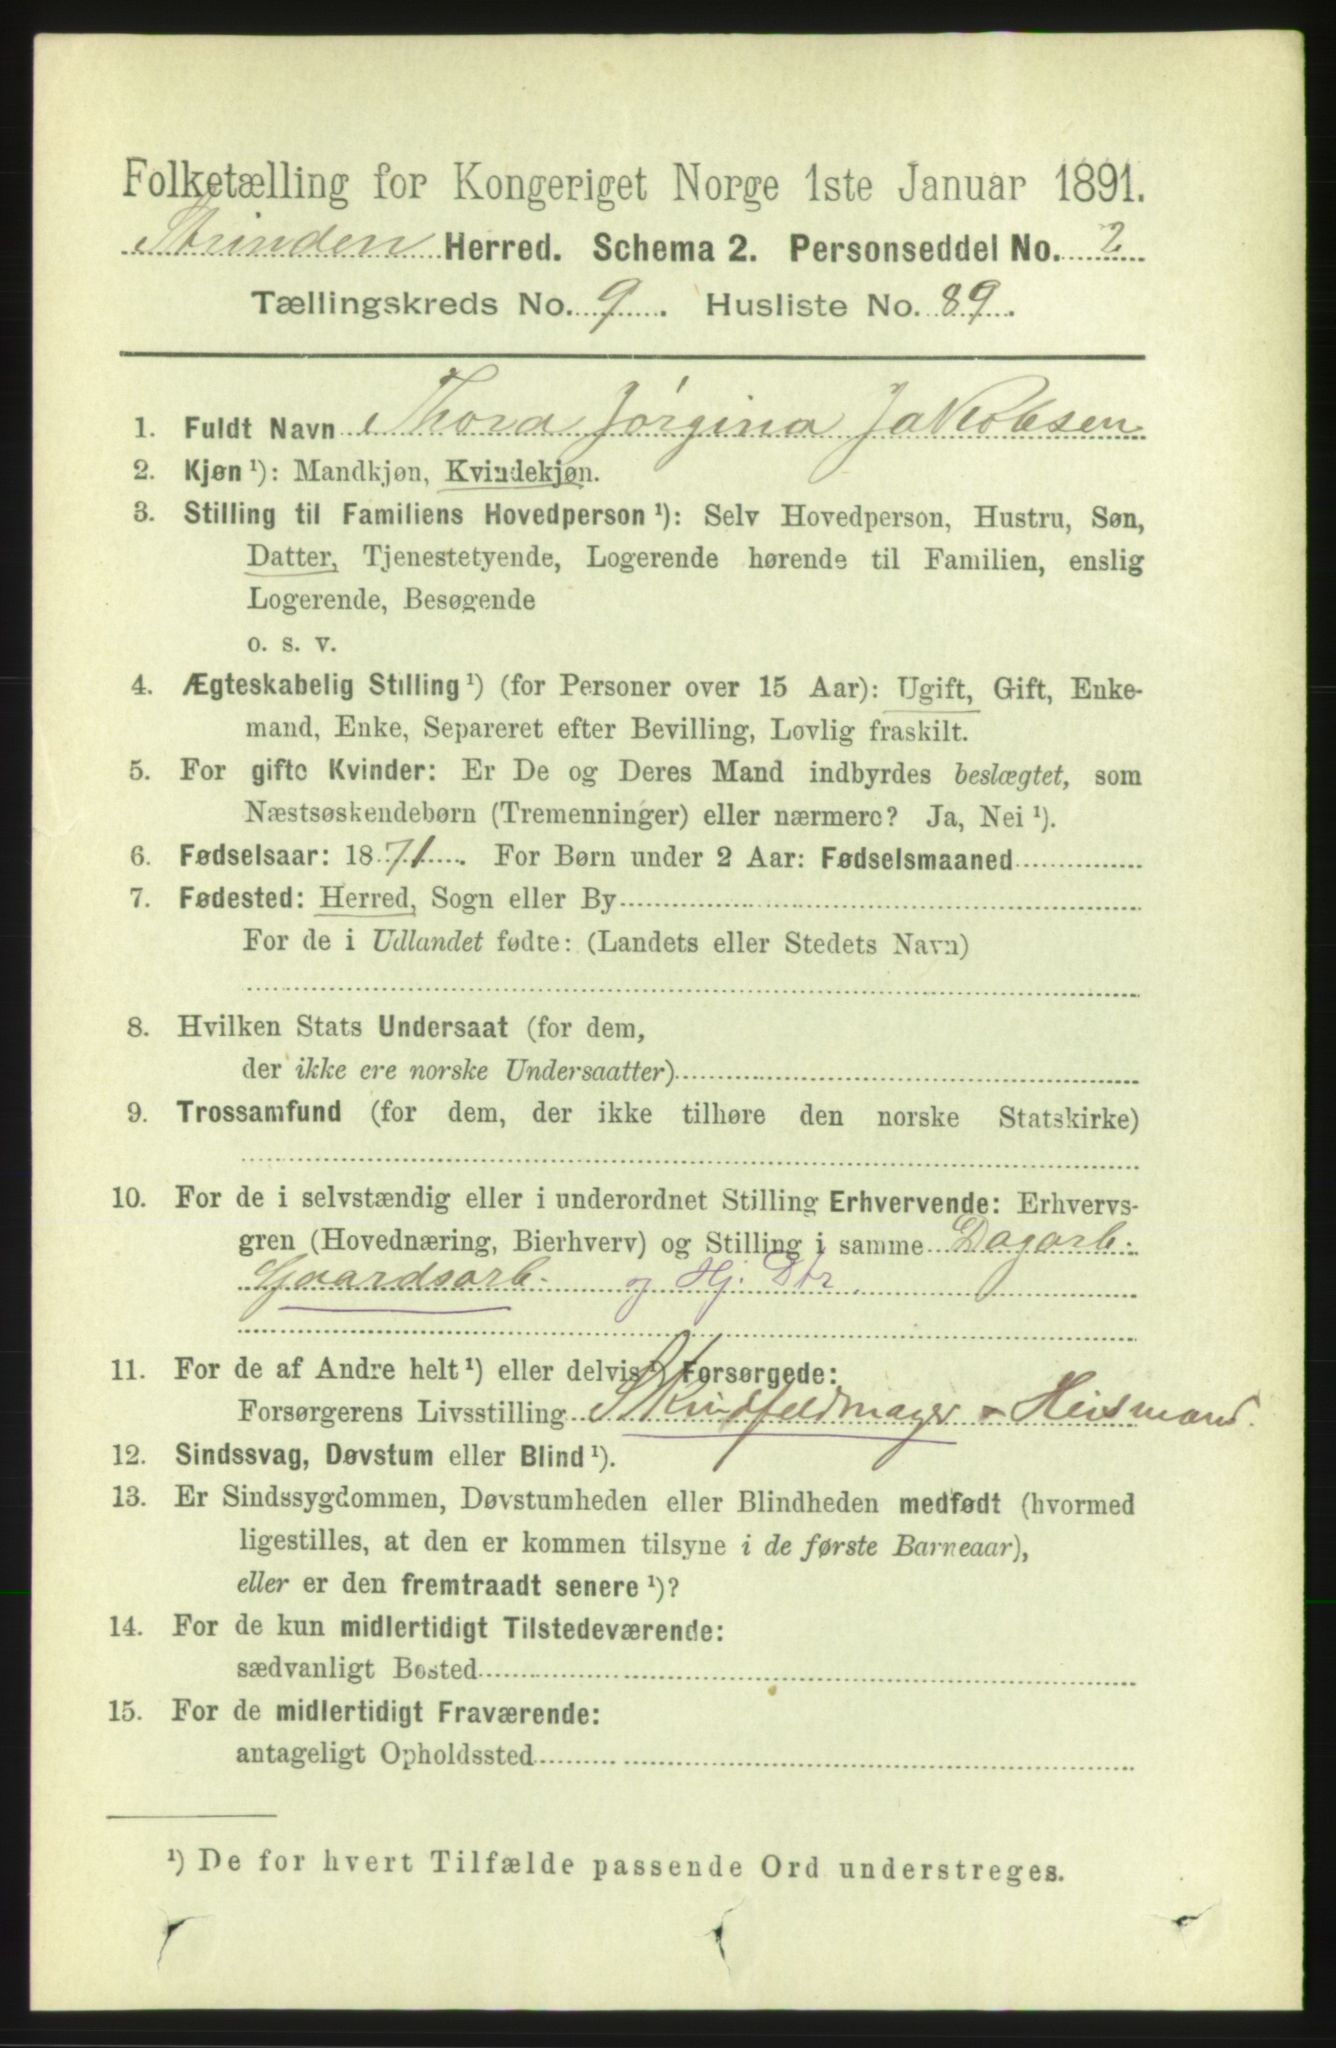 Folketælling for Kongeriget Norge 1ste Januar 1891.
Strinden Herred. Schema 2. Personseddel No. 2
Tællingskreds No. 9. Husliste No. 89.
1. Fuldt Navn Thora Jørgina Jakobsen
2. Kjøn ¹): Mandkjøn, Kvindekjøn.
3. Stilling til Familiens Hovedperson ¹): Selv Hovedperson, Hustru, Søn,
Datter, Tjenestetyende, Logerende hørende til Familien, enslig
Logerende, Besøgende
o. s. v.
4. Ægteskabelig Stilling ¹) (for Personer over 15 Aar): Ugift, Gift, Enke-
mand, Enke, Separeret efter Bevilling, Lovlig fraskilt.
5. For gifte Kvinder: Er De og Deres Mand indbyrdes beslægtet, som
Næstsøskendebørn (Tremenninger) eller nærmere? Ja, Nei ¹).
6. Fødselsaar: 1871. For Børn under 2 Aar: Fødselsmaaned
7. Fødested: Herred, Sogn eller By
For de i Udlandet fødte: (Landets eller Stedets Navn)
8. Hvilken Stats Undersaat (for dem,
der ikke ere norske Undersaatter)
9. Trossamfund (for dem, der ikke tilhøre den norske Statskirke)
10. For de i selvstændig eller i underordnet Stilling Erhvervende: Erhvervs-
gren (Hovednæring, Bierhverv) og Stilling i samme Dagarb.
Gaardsarb. og Hj. Dtr.
11. For de af Andre helt ¹) eller delvis ¹) Forsørgede:
Forsørgerens Livsstilling Skindfeldmager Heismand.
12. Sindssvag, Døvstum eller Blind ¹).
13. Er Sindssygdommen, Døvstumheden eller Blindheden medfødt (hvormed
ligestilles, at den er kommen tilsyne i de første Barneaar),
eller er den fremtraadt senere ¹)?
14. For de kun midlertidigt Tilstedeværende:
sædvanligt Bosted
15. For de midlertidigt Fraværende:
antageligt Opholdssted
¹) De for hvert Tilfælde passende Ord understreges.